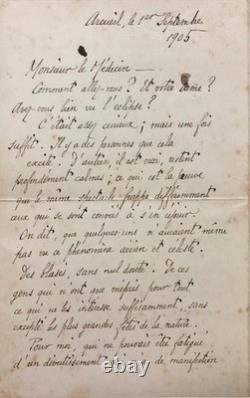 Arcueil, le 1er Septembre
1905
Monsieur le Médecin —
Comment allez-vous ? Et votre dame ?
Avez-vous bien vu l'éclipse ?
C'était assez curieux ; mais une fois
suffit. Il y a des personnes que cela
excite. D'autres, il est vrai, restent
profondément calmes ; ce qui est la preuve
que le même spectacle frappe différemment
ceux qui se sont conviés à
On dit, que quelques-uns n'auraient même
pas vu ce phénomène océan et céleste.
Des blasés, sans nul doute. De ces
gens qui n'ont que mépris pour tout
ce qui ne les intéresse suffisamment, sans
excepter les plus grandes fêtes de la nature.
Pour moi, qui ne pouvais être fatigué
d'un de manifestion
© ebay